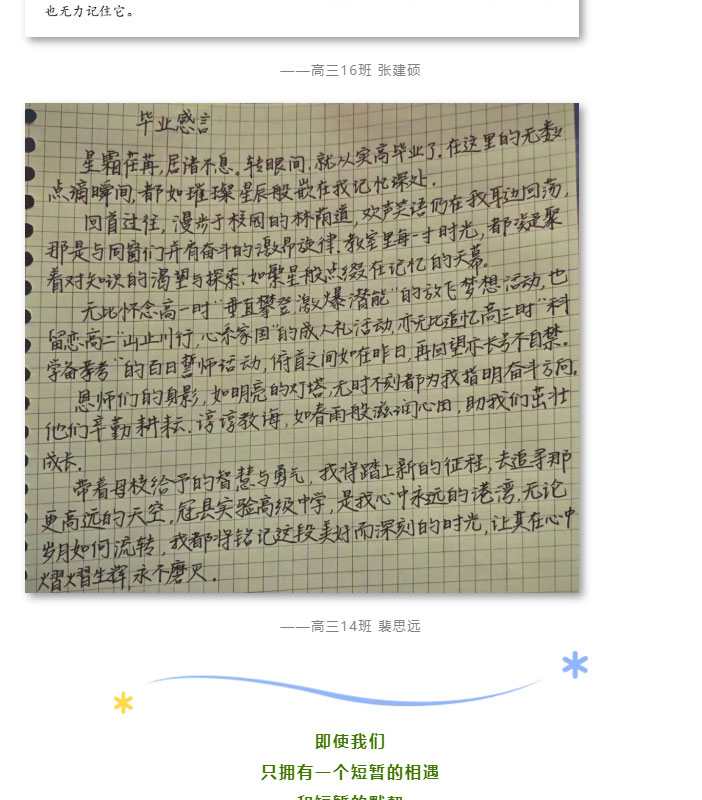 也无力记住它。
——高三16班 张建硕
毕业感言
星霜荏苒,居诸不息。转眼间,就从实高毕业了。在这里的无数
点滴瞬间,都如璀璨星辰般嵌在我记忆深处。
回首过往,漫步于校园的林荫道,欢声笑语仍在我耳边回荡,
那是与同窗们并肩奋斗的激昂旋律。教室里每一寸时光,都凝聚
着对知识的渴望与探索,如繁星般点缀在记忆的天幕。
无比怀念高一时"垂直攀登,激爆潜能"的放飞梦想活动,也
留恋高二"出止川行,心系家国"的成人礼活动,亦无比追忆高三时"科
学备考"的百日誓师活动,俯首之间如在昨日,再回望亦长号不自禁。
恩师们的身影,如明亮的灯塔,无时不刻都为我指明奋斗方向。
他们辛勤耕耘,谆谆教诲,如春雨般滋润心田,助我们茁壮
成长。
带着母校给予的智慧与勇气,我将踏上新的征程,去追寻那
更高远的天空。冠县实验高级中学,是我心中永远的港湾,无论
岁月如何流转,我都将铭记这段美好而深刻的时光,让其在心中
熠熠生辉,永不磨灭。
——高三14班 裴思远
即使我们
只拥有一个短暂的相遇
和短暂的默契